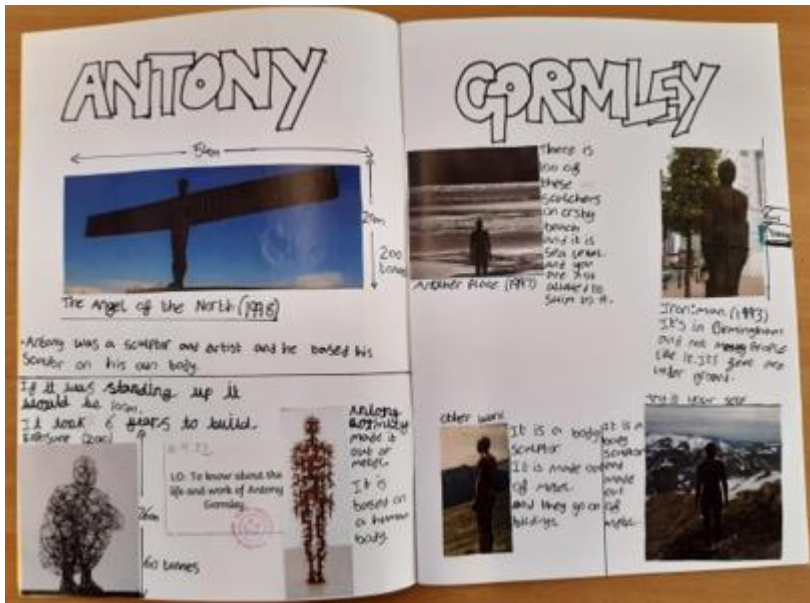 ANTONY
54m
20m
200
tonnes
The Angel of the North (1998)
-Antony was a sculptor and artist and he based his
sculptor on his own body.
If it was standing up it
would be
It took 6 years to build.
Exposure
26m
60 tonnes
LO: To know about the
life and work of Antony
Gormley.
Antony
Gormley
made it
out of
metel.
It is
based on
a human
body.
GORMLEY
There is
100 of
these
in
beach
and it is
sea level
and you
are not
allowed to
swim in it.
Another Place (1997)
Iron:man (1993)
It's in Birmingham
and not people
like it. It's
under ground.
other work
It is a body
sculptor
It is made out
of metel
and they go on
bildings
try it your self
it is a
body
sculptor
and
made
out
of
metel.